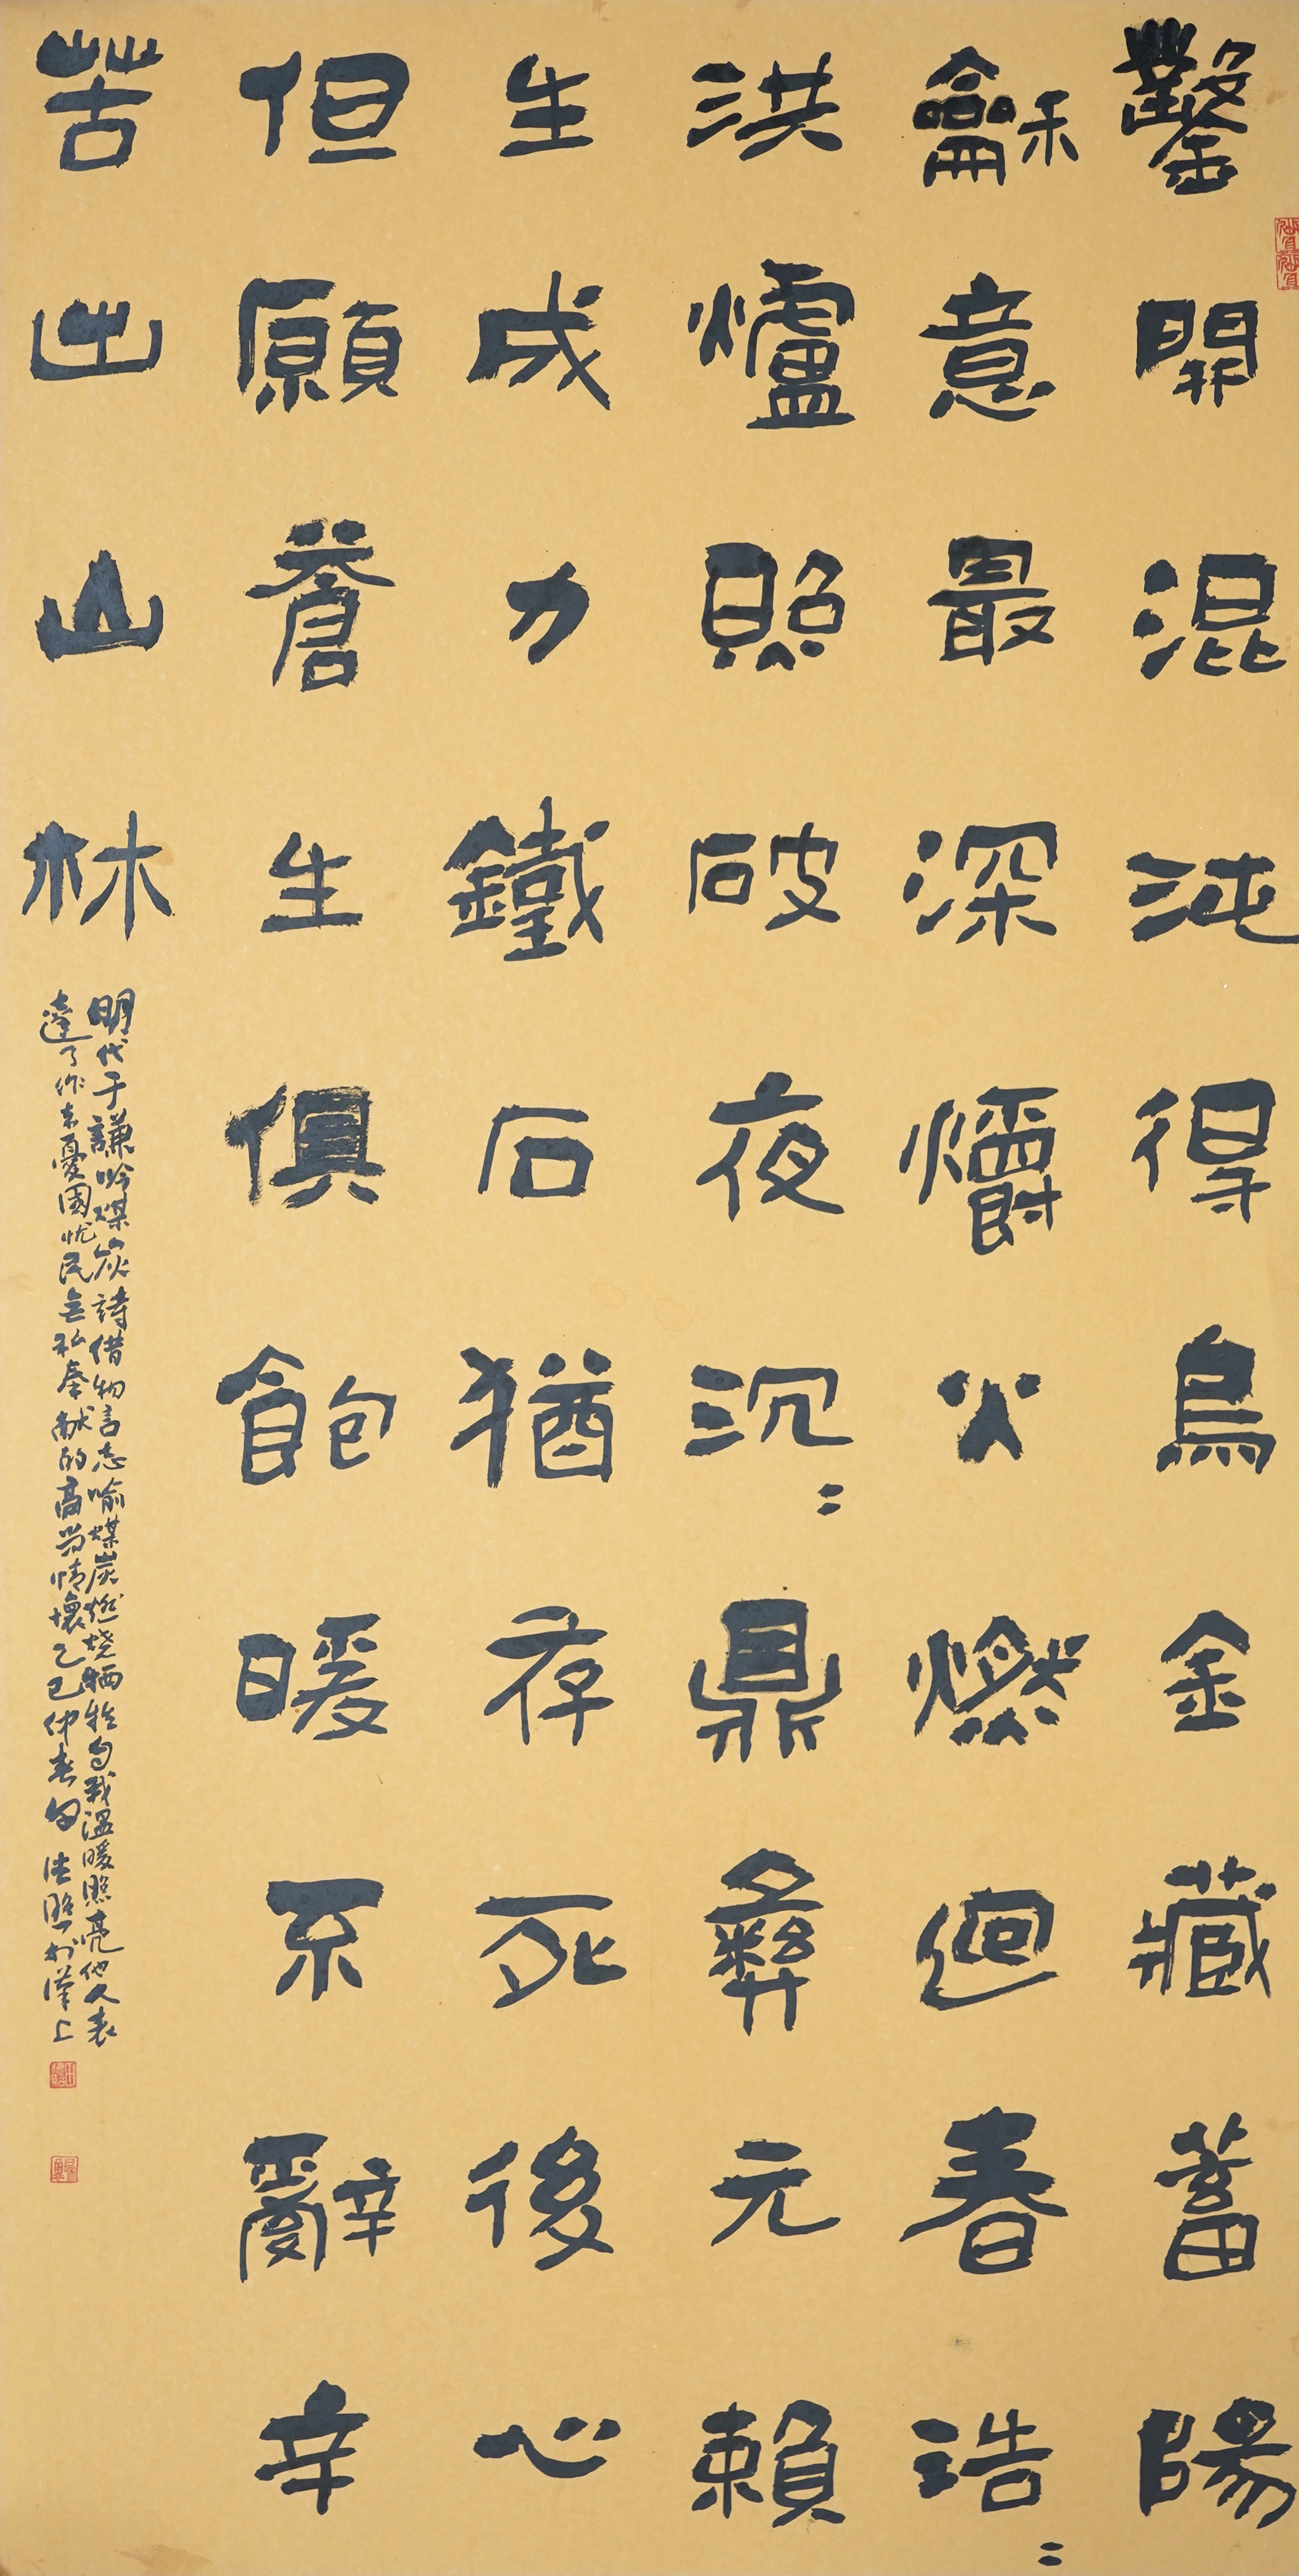 鑿開混沌得烏金藏蓄陽
龢意最深爝火燃迴春浩〻
洪爐照破夜沉〻鼎彝元賴
生成力鐵石猶存死後心
但願蒼生俱飽暖不辭辛
苦出山林
明代于謙吟煤炭詩借物言志喻煤炭燃烧牺牲自我溫暖照亮他人表
達了作者憂國忧民無私奉献的高尚情懷乙巳仲春旬德照於漢上